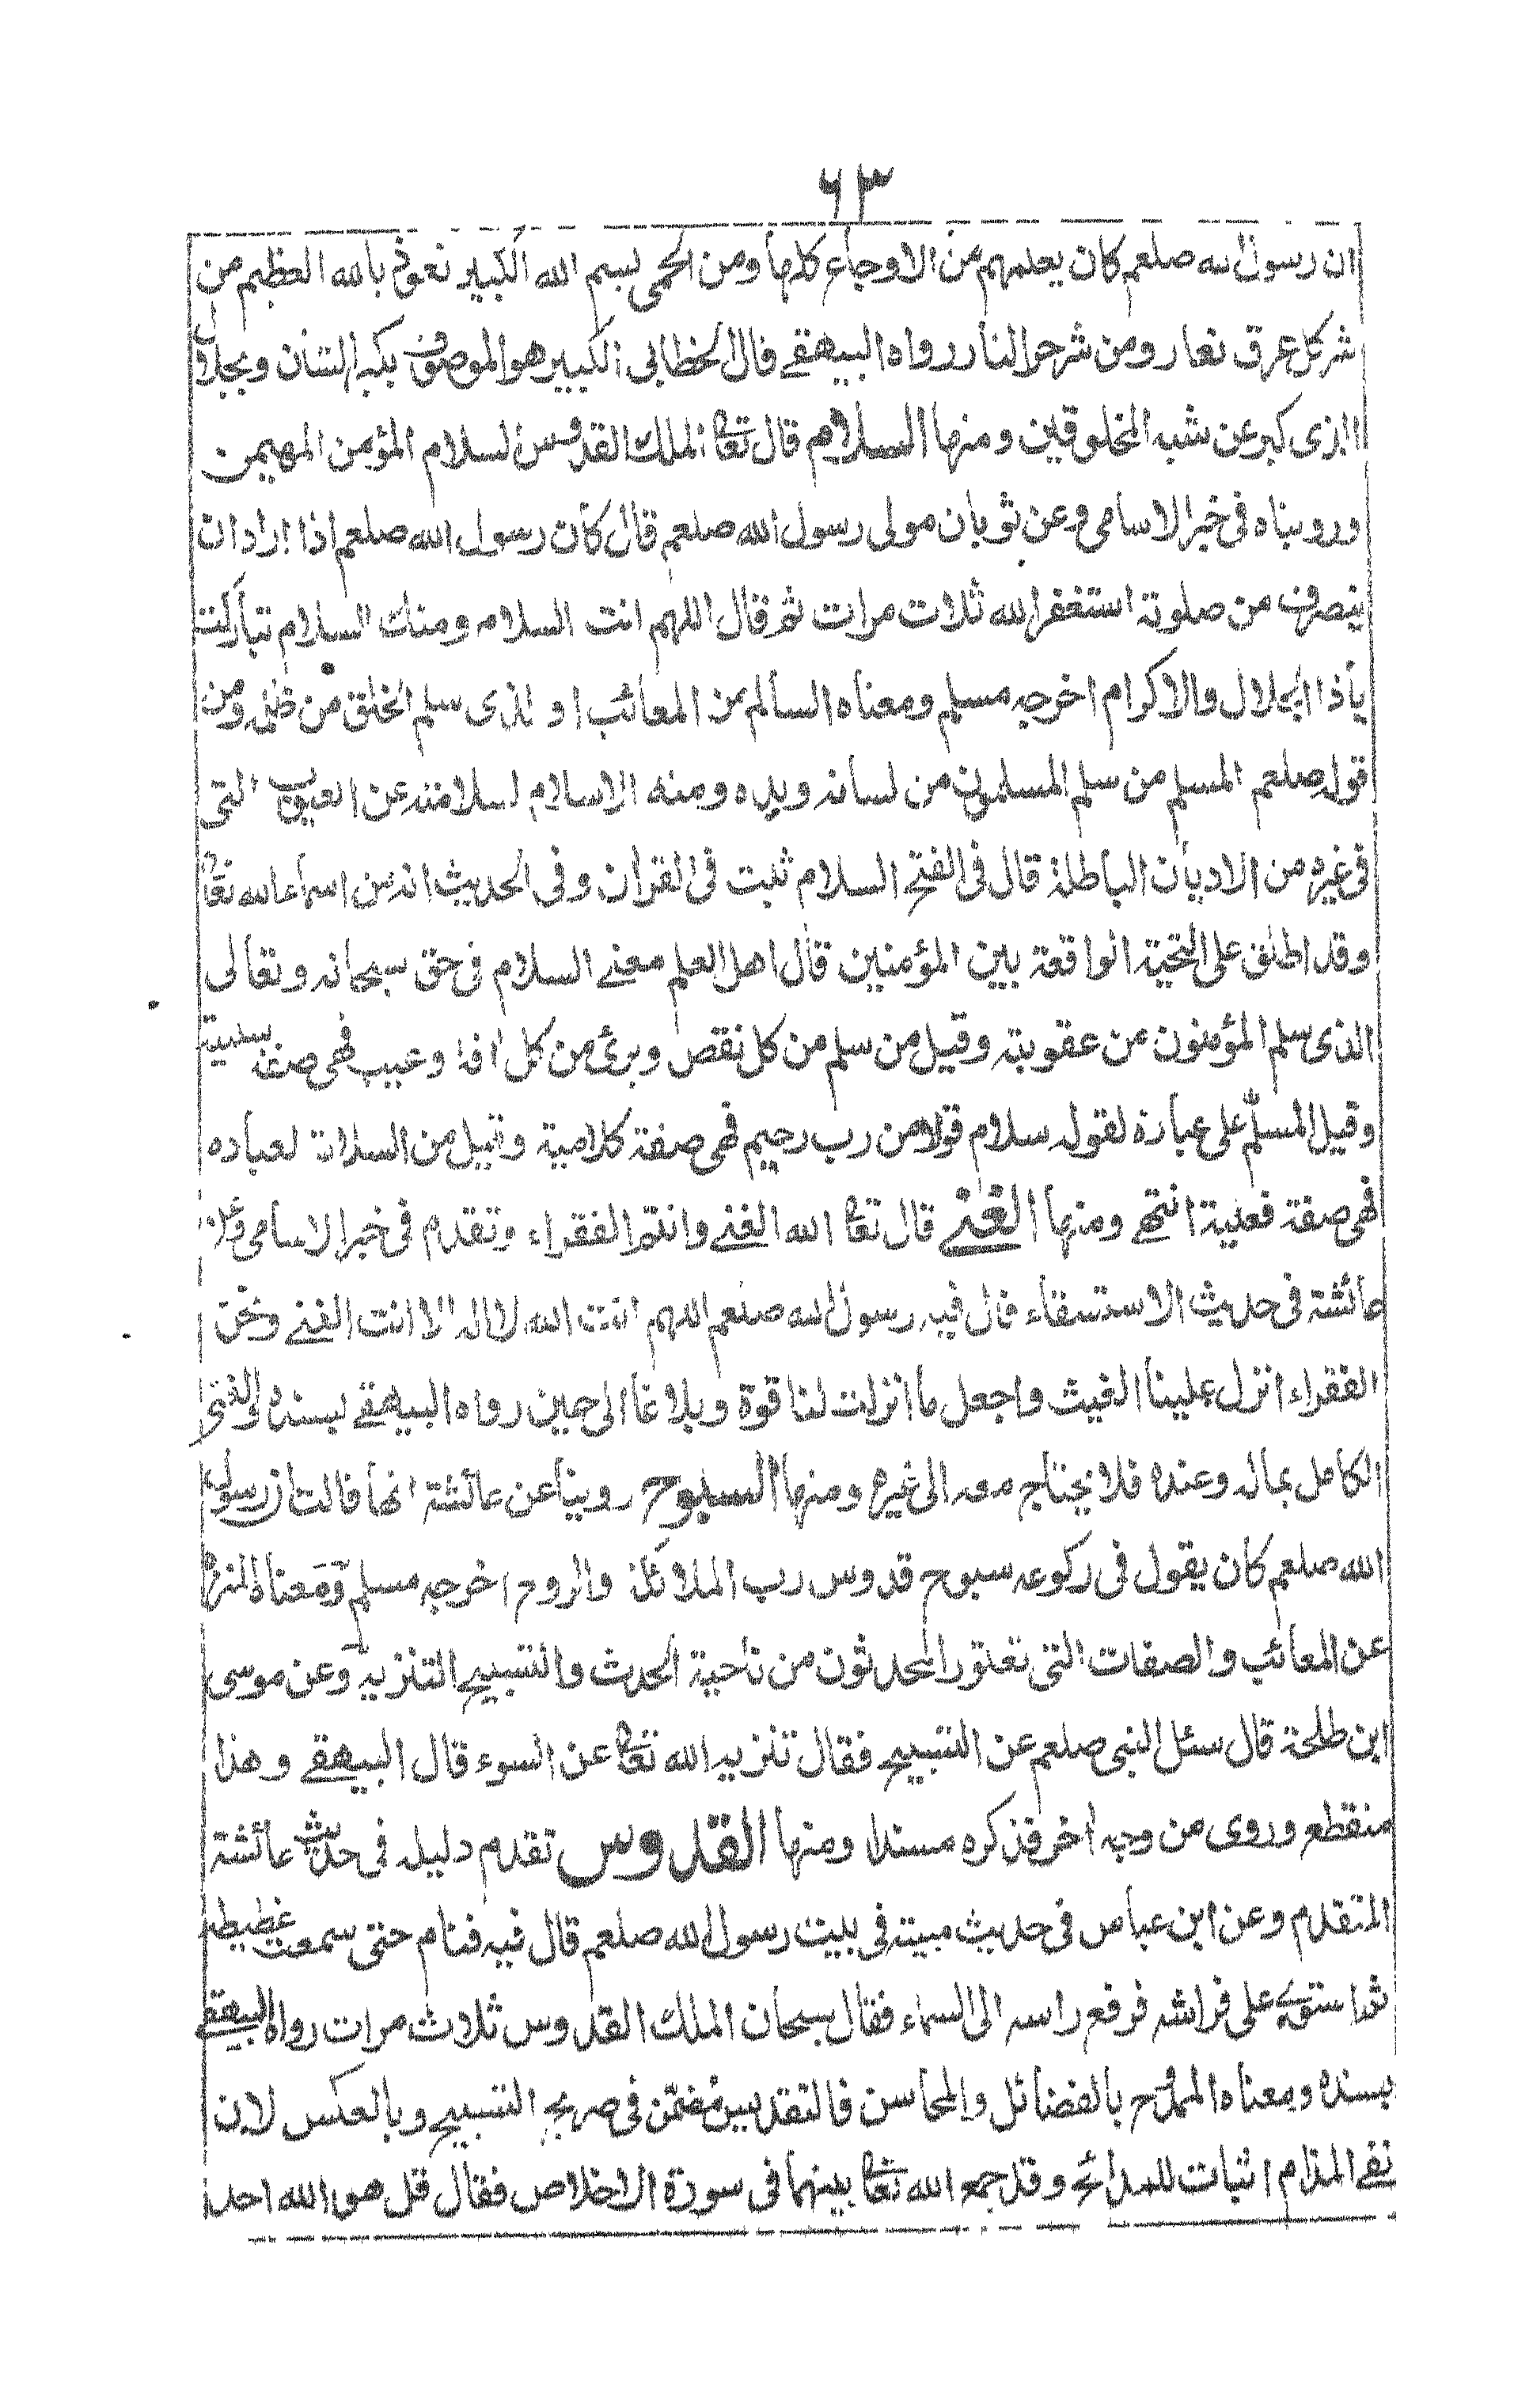 ٦٣
ان رسول الله صلعم كان يعلمهم من الاوجاع كلها ومن الحمى بسم الله الكبير نعوذ بالله العظيم من
شر كل عرق نعار ومن شر حر النار رواه البيهقے قال الخطابي الكبير هو الموصوف بكبر الشان وبجلال
الذى كبر عن شبه المخلوقين ومنها السلام قال تعا الملك القدوس السلام المؤمن المهيمن
ورويناه فى خبر الاسامى وعن ثوبان مولى رسول الله صلعم قال كان رسول الله صلعم اذا اراد ان
ينصرف من صلوته استغفر الله ثلاث مرات ثم قال اللهم انت السلام ومنك السلام تباركت
يا ذا الجلال والاكرام اخرجه مسلم ومعناه السالم من المعائب او الذى سلم الخلق من ظلمه ومن
قوله صلعم المسلم من سلم المسلمون من لسانه ويده ومنه الاسلام لسلامته عن العيوب التى
فى غيره من الاديان الباطلة قال فى الفتح السلام ثبت فى القران وفى الحديث انه من اسماء الله تعا
وقد اطلق على التحية الواقعة بين المؤمنين قال اهل العلم معنے السلام فى حق سبحانه وتعالى
الذى سلم المؤمنون من عقوبته وقيل من سلم من كل نقص وبرئ من كل افة وعيب فهى صفة سلبية
وقيل المسلم على عباده لقوله سلام قولا من رب رحيم فهى صفة كلامية وقيل من السلامة لعباده
فهى صفة فعلية انتهے ومنها الغنے قال تعا الله الغنے وانتم الفقراء وتقدم فى خبر الاسامى وعن
عائشة فى حديث الاستسقاء قال فيه رسول الله صلعم اللهم انت الله لا اله الا انت الغنے ونحن
الفقراء انزل علينا الغيث واجعل ما انزلت لنا قوة وبلاغا الى حين رواه البيهقے بسنده والغنى
الكامل بماله وعنده فلا يحتاج معه الى غيره ومنها السبوح روينا عن عائشة انها قالت ان رسول
الله صلعم كان يقول فى ركوعه سبوح قدوس رب الملائكة والروح اخرجه مسلم ومعناه المنزه
عن المعائب والصفات التى تعتور المحدثون من ناحية الحدث والتسبيح التنزيه وعن موسى
ابن طلحة قال سئل النبى صلعم عن التسبيح فقال تنزيه الله تعا عن السوء قال البيهقے وهذا
منقطع وروى من وجه اخر فذكره مسندا ومنها القدوس تقدم دليله فى حديث عائشة
المتقدم وعن ابن عباس فى حديث مبيته فى بيت رسول الله صلعم قال فيه فنام حتى سمعت غطيطه
ثم استوے على فراشه فرفع راسه الى السماء فقال سبحان الملك القدوس ثلاث مرات رواه البيهقے
بسنده ومعناه الممدوح بالفضائل والمحاسن فالتقديس مضمّن فى صريح التسبيح وبالعكس لان
نفے المذام اثبات للمدائح وقد جمع الله تعا بينهما فى سورة الاخلاص فقال قل هو الله احد